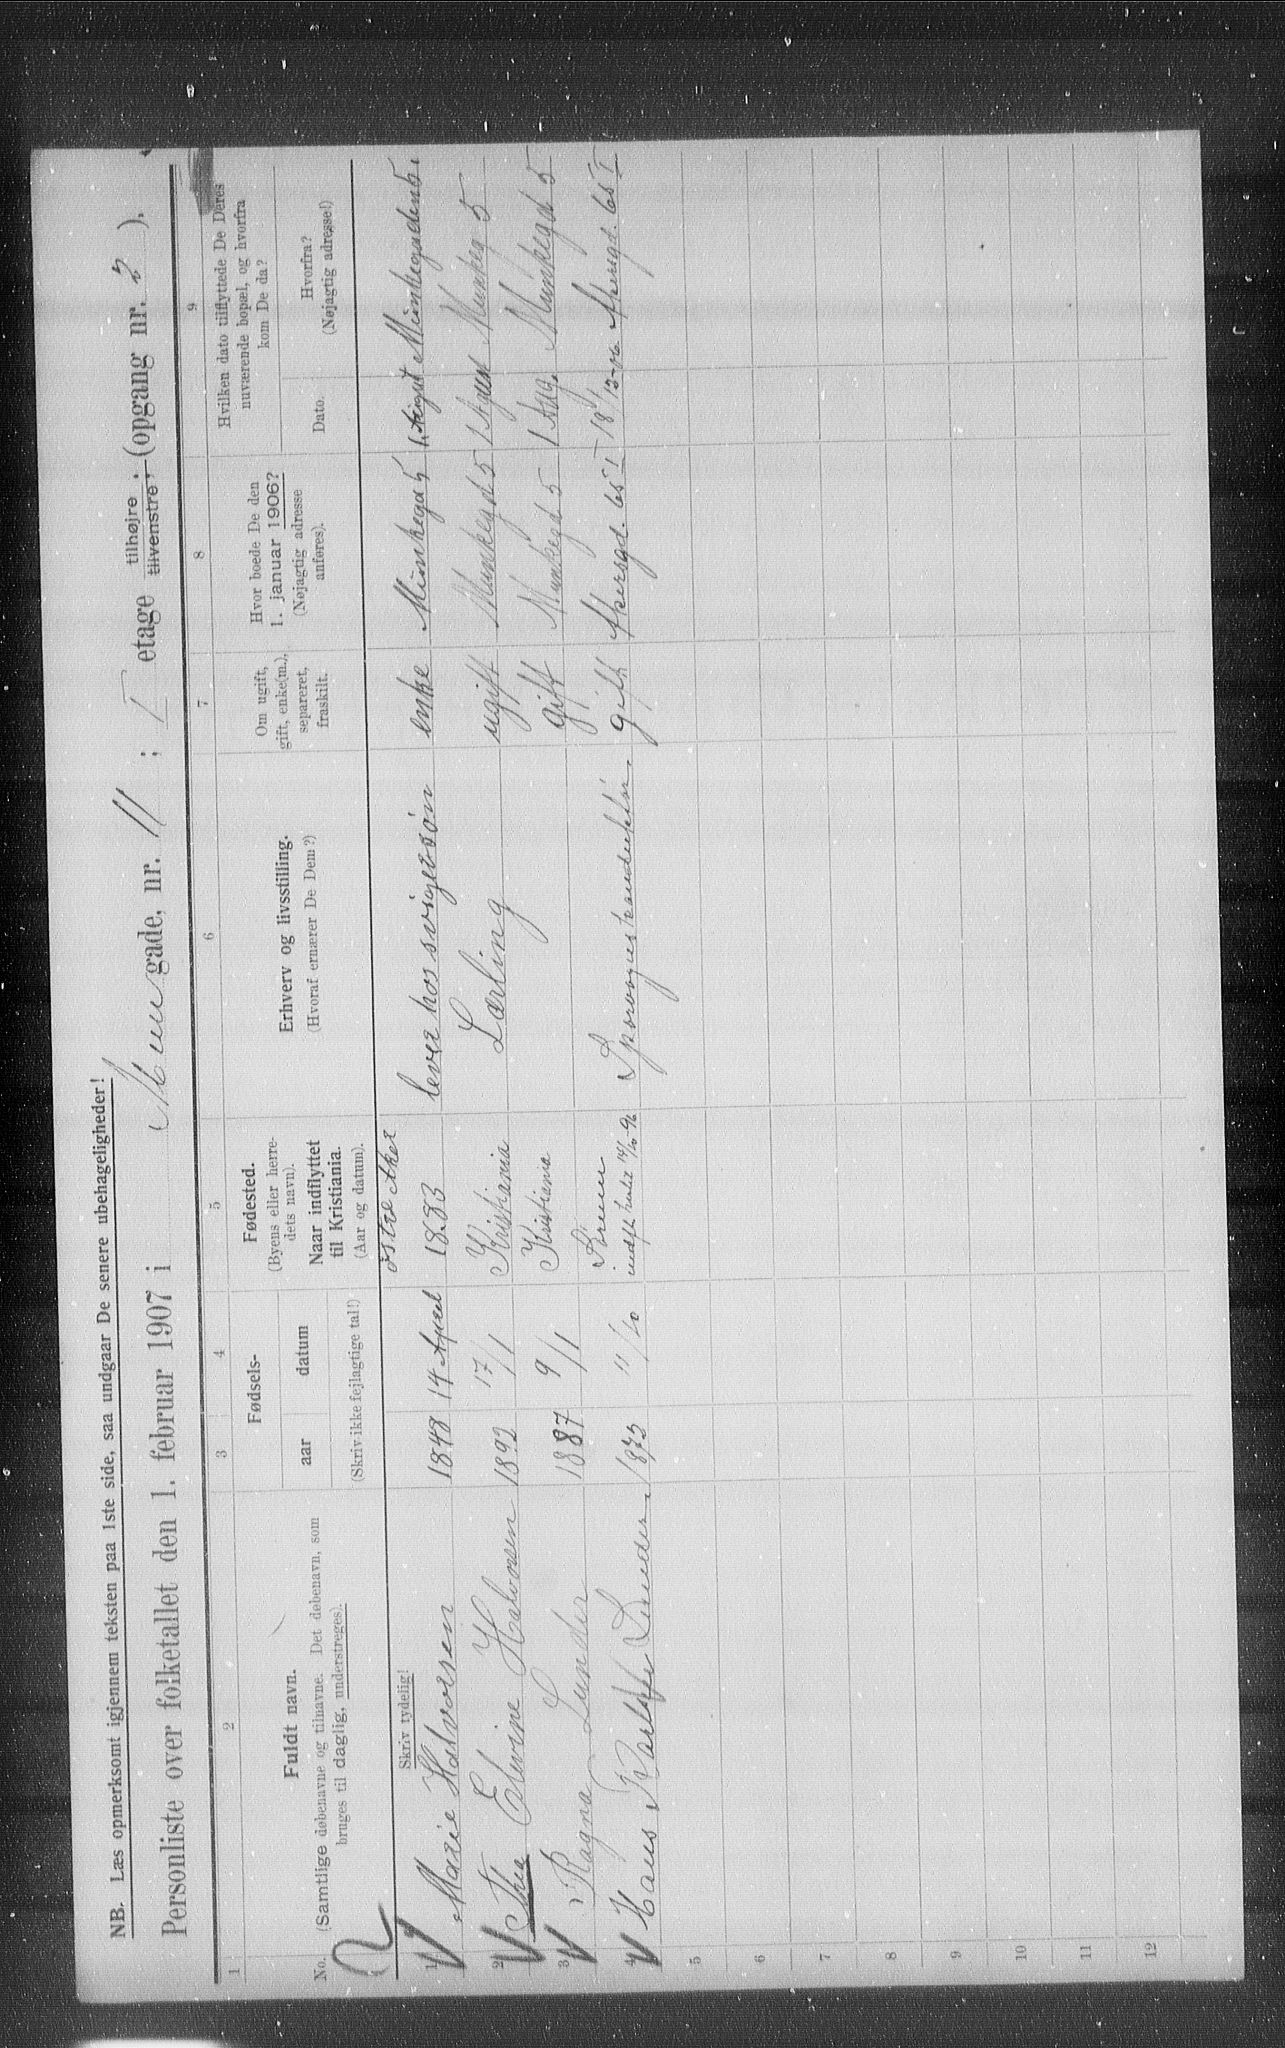 NB. Læs opmerksomt igjennem teksten paa 1ste side, saa undgaar De senere ubehageligheder!
Personliste over folketallet den 1. februar 1907 i gade, nr. 11 ; I etage tilhøjre ; tilvenstre ; (opgang nr. 2 ).
1 2 3 4 5 6 7 8 9
No.
Fuldt navn.
(Samtlige døbenavne og tilnavne. Det døbenavn, som
bruges til daglig, understreges).
Fødsels-
aar datum
(Skriv ikke fejlagtige tal!)
Fødested.
(Byens eller herre-
dets navn).
Naar indflyttet
til Kristiania.
(Aar og datum).
Erhverv og livsstilling.
(Hvoraf ernærer De Dem?)
Om ugift,
gift, enke(m.),
separeret,
fraskilt.
Hvor boede De den
1. januar 1906?
(Nøjagtig adresse
anføres).
Hvilken dato tilflyttede De Deres
nuværende bopæl, og hvorfra
kom De da?
Dato.
Hvorfra?
(Nøjagtig adresse!)
Skriv tydelig!
østre Aker
1 Marie Halvorsen 1848 14 April 1883 lever hos svigersøn enke Munkegd 5 1 August Munkegaden 5
2 Thea Elvine Halvorsen 1892 17/1 Kristiania Lærling ugift Munkegd 5 1 Munkeg 5
3 Ragna Lunder 1887 9/1 Kristiania gift Munkegd 5 1 Aug. Munkegd 5
4 Hans Lunder 1873 11/10 gift Akersgd. 65 I 18/12-06 Akersgd. 65 I
5
6
7
8
9
10
11
12